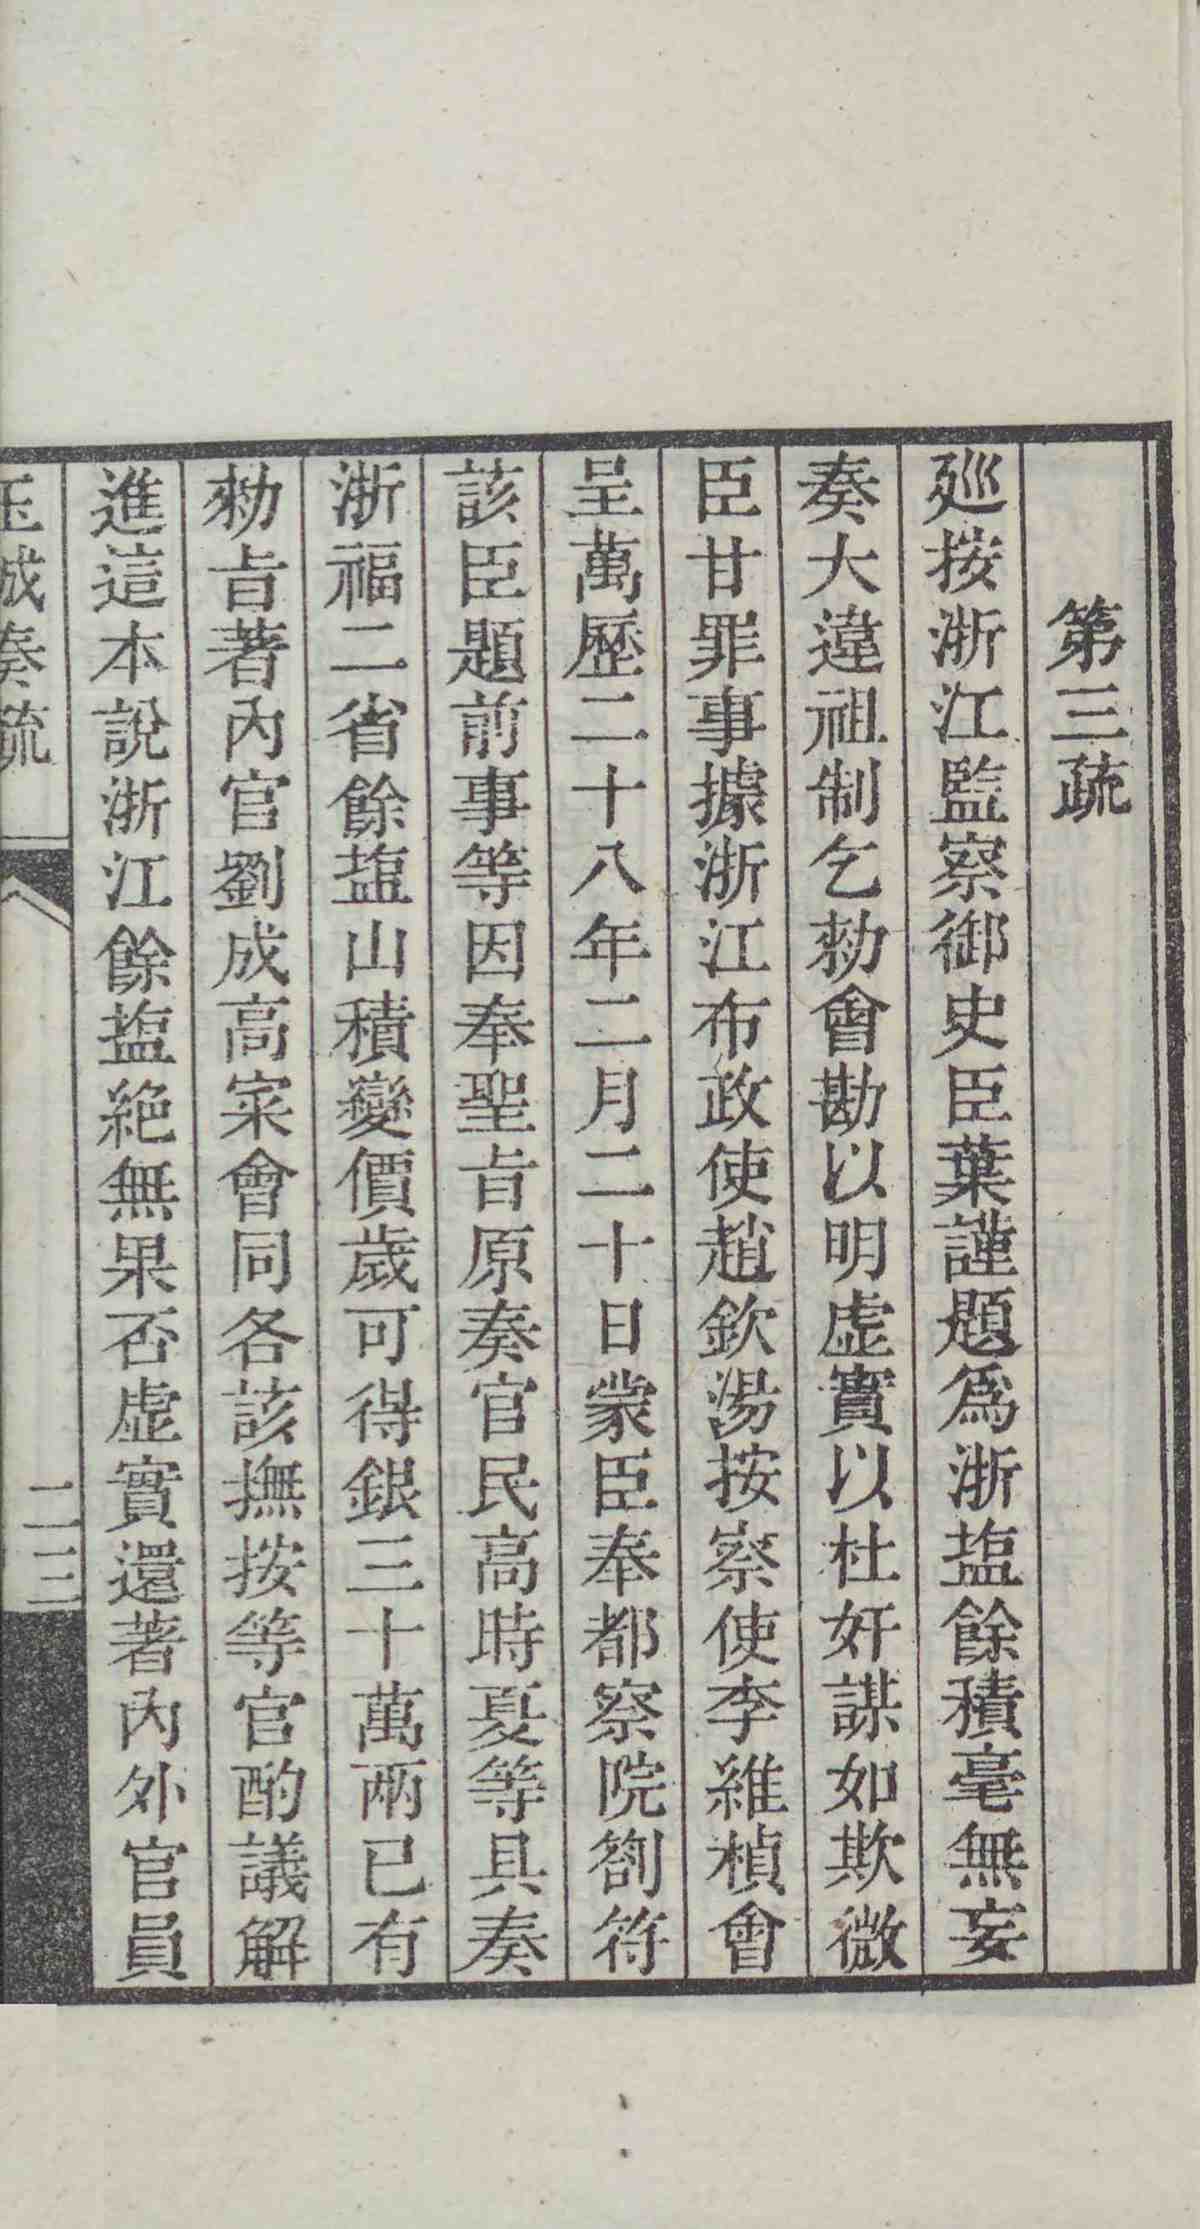 第三疏
廵按浙江監察御史臣葉謹題爲浙塩餘積毫無妄
奏大違祖制乞勑會勘以明虛實以杜奸謀如欺微
臣甘罪事據浙江布政使趙欽湯按察使李維楨會
呈萬歷二十八年二月二十日蒙臣奉都察院劄符
該臣題前事等因奉聖旨原奏官民高時夏等具奏
浙福二省餘塩山積變價歲可得銀三十萬兩已有
勑旨著內官劉成高寀會同各該撫按等官酌議解
進這本說浙江餘塩絶無果否虛實還著內外官員
玉城奏疏
二三